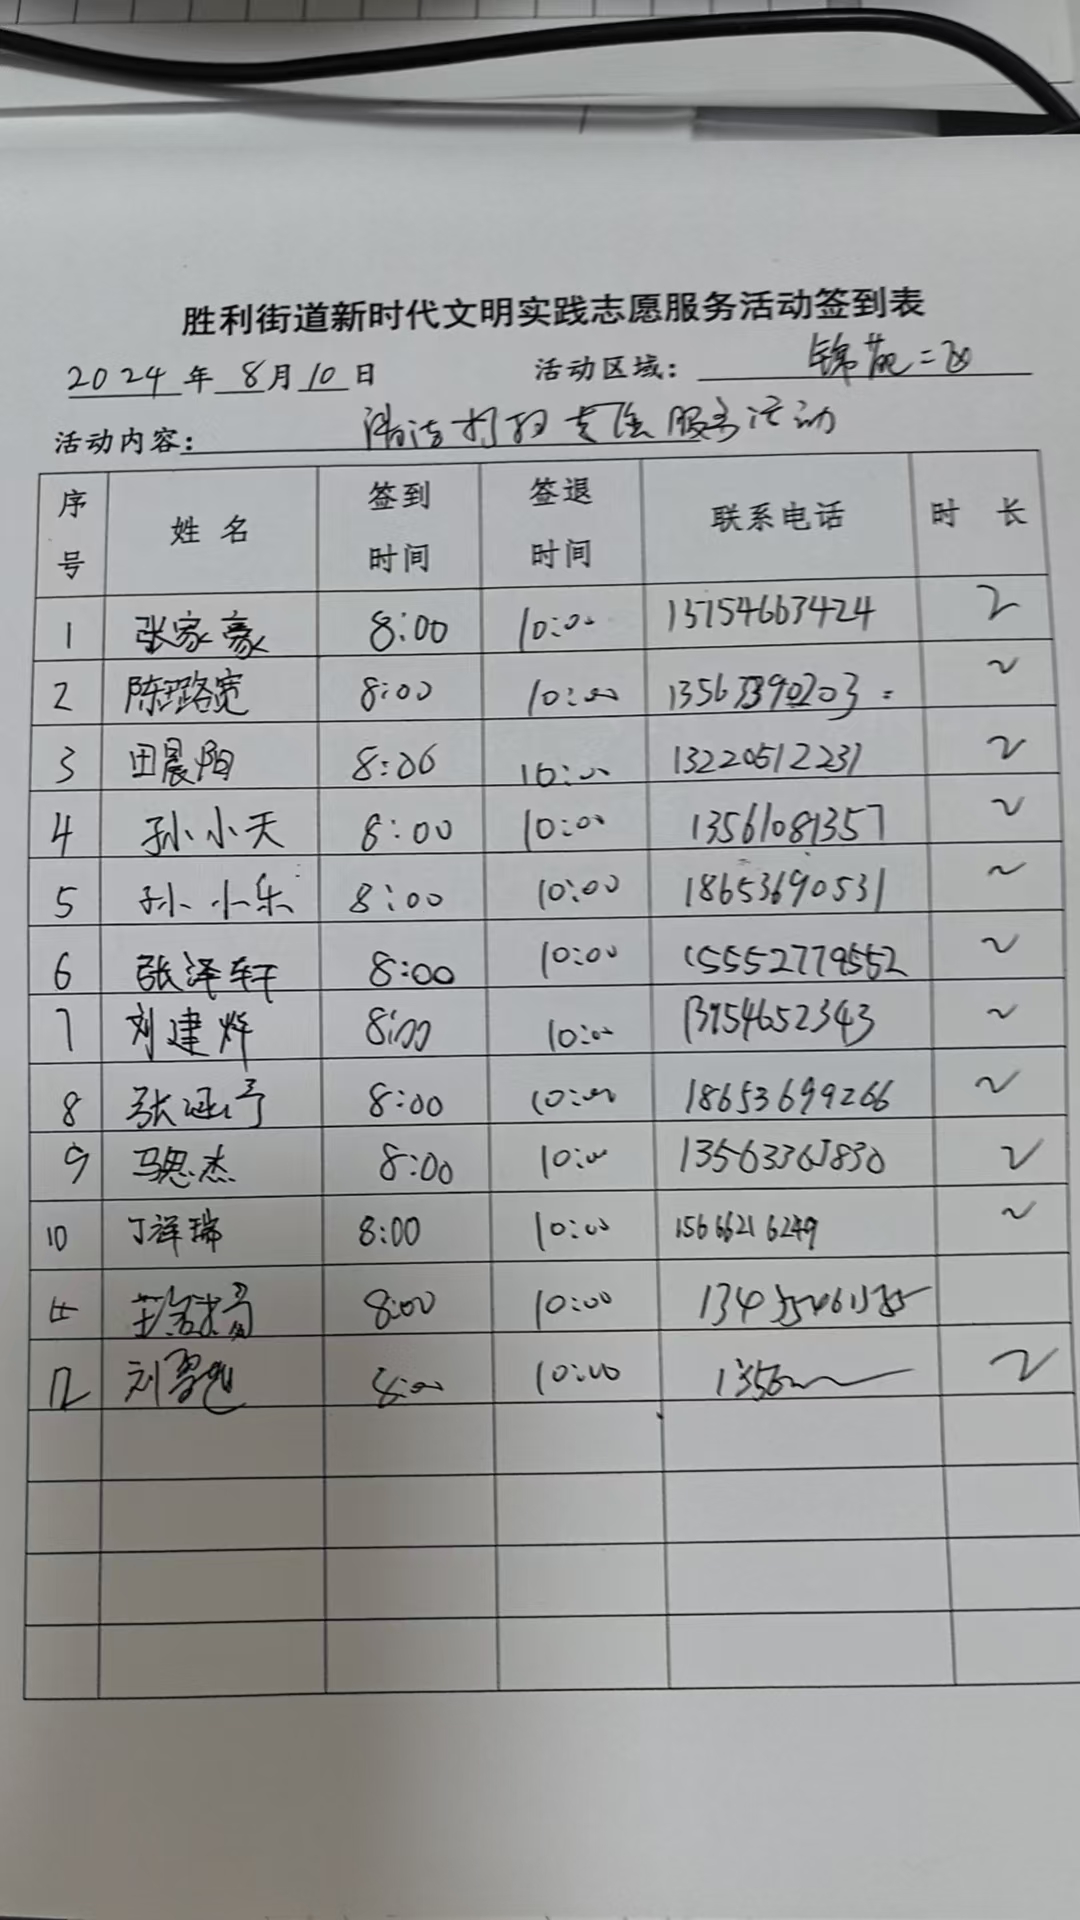 胜利街道新时代文明实践志愿服务活动签到表
2024年 8月10日 活动区域: 锦苑二
活动内容: 清洁打扫志愿服务活动
序号 姓名 签到时间 签退时间 联系电话 时 长
1 张家豪 8:00 10:00 13754663424 2
2 陈璐宽 8:00 10:00 2
3 田晨阳 8:00 10:00 13220512231 2
4 孙小天 8:00 10:00 13561081357 2
5 孙小乐 8:00 10:00 18653690531 2
6 张泽轩 8:00 10:00 15552779552 2
7 刘建烨 8:00 10:00 13954652343 2
8 张涵予 8:00 10:00 18653699266 2
9 马思杰 8:00 10:00 13563361830 2
10 丁祥瑞 8:00 10:00 15666216249 2
11 8:00 10:00
12 刘 8:00 10:00 1356 2